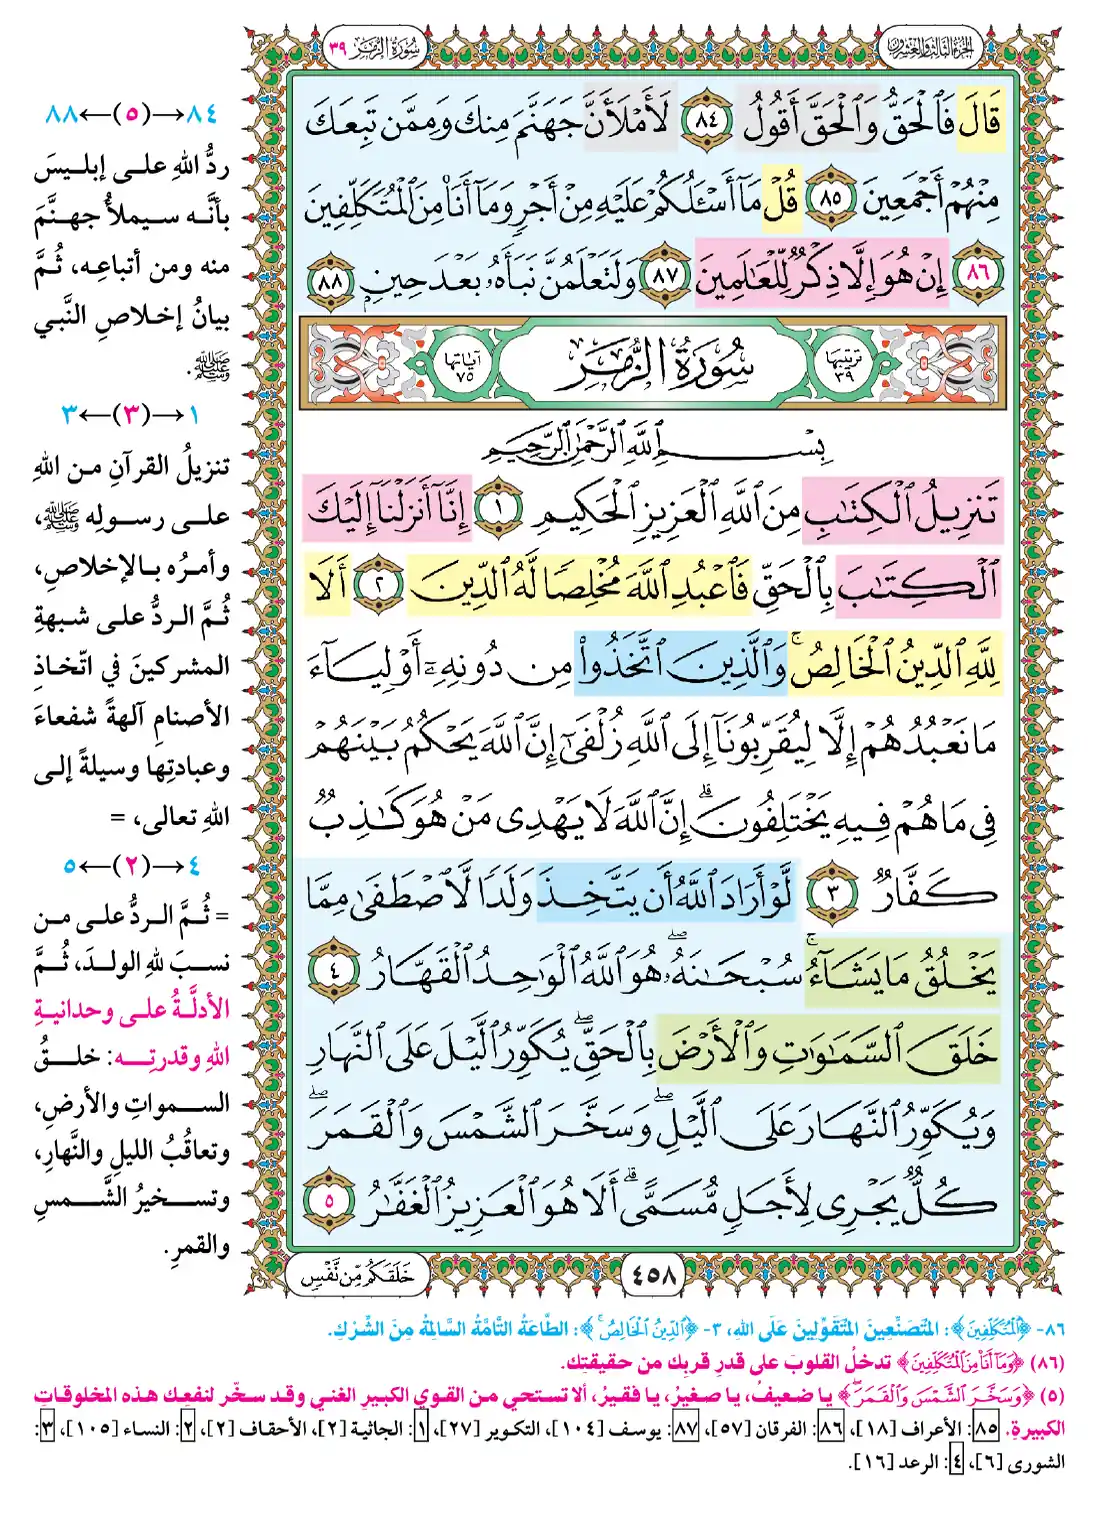 الجزء الثالث والعشرون
سُورَةُ الزُّمَرِ ٣٩
قَالَ فَٱلْحَقُّ وَٱلْحَقَّ أَقُولُ ٨٤ لَأَمْلَأَنَّ جَهَنَّمَ مِنكَ وَمِمَّن تَبِعَكَ
مِنْهُمْ أَجْمَعِينَ ٨٥ قُلْ مَآ أَسْـَٔلُكُمْ عَلَيْهِ مِنْ أَجْرٍ وَمَآ أَنَا۠ مِنَ ٱلْمُتَكَلِّفِينَ
٨٦ إِنْ هُوَ إِلَّا ذِكْرٌ لِّلْعَـٰلَمِينَ ٨٧ وَلَتَعْلَمُنَّ نَبَأَهُۥ بَعْدَ حِينٍۭ ٨٨
ترتيبها ٣٩ سُورَةُ الزُّمَرِ آياتها ٧٥
بِسْمِ ٱللَّهِ ٱلرَّحْمَـٰنِ ٱلرَّحِيمِ
تَنزِيلُ ٱلْكِتَـٰبِ مِنَ ٱللَّهِ ٱلْعَزِيزِ ٱلْحَكِيمِ ١ إِنَّآ أَنزَلْنَآ إِلَيْكَ
ٱلْكِتَـٰبَ بِٱلْحَقِّ فَٱعْبُدِ ٱللَّهَ مُخْلِصًا لَّهُ ٱلدِّينَ ٢ أَلَا
لِلَّهِ ٱلدِّينُ ٱلْخَالِصُ ۚ وَٱلَّذِينَ ٱتَّخَذُوا۟ مِن دُونِهِۦٓ أَوْلِيَآءَ
مَا نَعْبُدُهُمْ إِلَّا لِيُقَرِّبُونَآ إِلَى ٱللَّهِ زُلْفَىٰٓ إِنَّ ٱللَّهَ يَحْكُمُ بَيْنَهُمْ
فِى مَا هُمْ فِيهِ يَخْتَلِفُونَ ۗ إِنَّ ٱللَّهَ لَا يَهْدِى مَنْ هُوَ كَـٰذِبٌ
كَفَّارٌ ٣ لَّوْ أَرَادَ ٱللَّهُ أَن يَتَّخِذَ وَلَدًا لَّٱصْطَفَىٰ مِمَّا
يَخْلُقُ مَا يَشَآءُ ۚ سُبْحَـٰنَهُۥ ۖ هُوَ ٱللَّهُ ٱلْوَٰحِدُ ٱلْقَهَّارُ ٤
خَلَقَ ٱلسَّمَـٰوَٰتِ وَٱلْأَرْضَ بِٱلْحَقِّ ۖ يُكَوِّرُ ٱلَّيْلَ عَلَى ٱلنَّهَارِ
وَيُكَوِّرُ ٱلنَّهَارَ عَلَى ٱلَّيْلِ ۖ وَسَخَّرَ ٱلشَّمْسَ وَٱلْقَمَرَ ۖ
كُلٌّ يَجْرِى لِأَجَلٍ مُّسَمًّى ۗ أَلَا هُوَ ٱلْعَزِيزُ ٱلْغَفَّـٰرُ ٥
٤٥٨
خَلَقَكُم مِّن نَّفْسٍ
٨٤→(٥)←٨٨
ردُّ اللهِ على إبليسَ
بأنَّه سيملأُ جهنَّمَ
منه ومن أتباعِه، ثُمَّ
بيانُ إخلاصِ النَّبي
ﷺ.
١→(٣)←٣
تنزيلُ القرآنِ من اللهِ
على رسوله ﷺ،
وأمرُه بالإخلاصِ،
ثُمَّ الردُّ على شبهةِ
المشركينَ في اتّخاذِ
الأصنامِ آلهةً شفعاءَ
وعبادتِها وسيلةً إلى
اللهِ تعالى، =
٤→(٢)←٥
= ثُمَّ الردُّ على من
نسبَ للهِ الولدَ، ثُمَّ
الأدلَّةُ على وحدانيةِ
اللهِ وقدرتِه: خلقُ
السمواتِ والأرضِ،
وتعاقُبُ الليلِ والنَّهارِ،
وتسخيرُ الشَّمسِ
والقمرِ.
٨٦- ﴿ٱلْمُتَكَلِّفِينَ﴾: المُتَصَنِّعِينَ المُتَقَوِّلِينَ عَلَى اللهِ، ٣- ﴿ٱلدِّينُ ٱلْخَالِصُ ۚ﴾: الطَّاعَةُ التَّامَّةُ السَّالِمَةُ مِنَ الشِّرْكِ.
(٨٦) ﴿وَمَآ أَنَا۠ مِنَ ٱلْمُتَكَلِّفِينَ﴾ تدخلُ القلوبَ على قدرِ قربِك من حقيقتِك.
(٥) ﴿وَسَخَّرَ ٱلشَّمْسَ وَٱلْقَمَرَ ۖ﴾ يا ضعيفُ، يا صغيرُ، يا فقيرُ، ألا تستحي من القوي الكبيرِ الغني وقد سخَّر لنفعِك هذه المخلوقاتِ
الكبيرةِ. ٨٥: الأعراف [١٨]، ٨٦: الفرقان [٥٧]، ٨٧: يوسف [١٠٤]، التكوير [٢٧]، ١: الجاثية [٢]، الأحقاف [٢]، ٢: النساء [١٠٥]، ٣:
الشورى [٦]، ٤: الرعد [١٦].